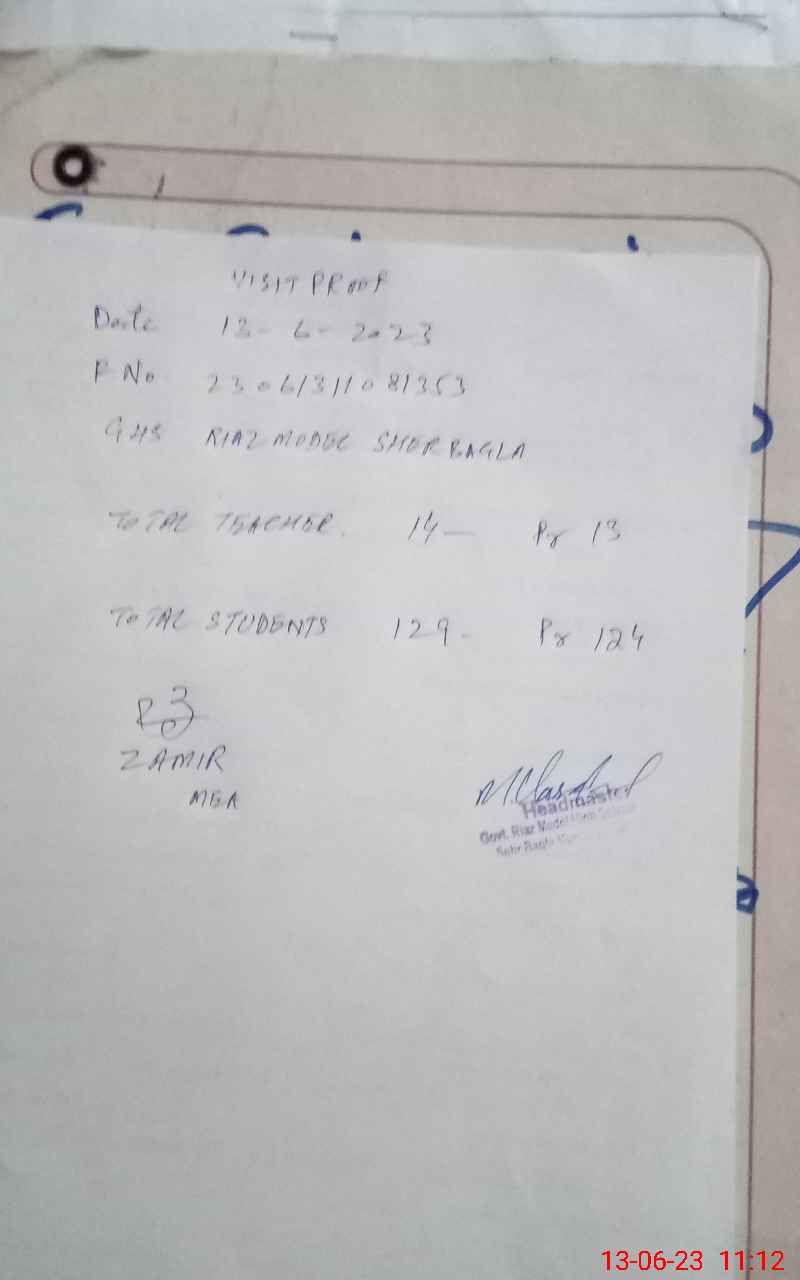 VISIT PROOF
Date 13-6-2023
F No 23061311081353
GHS RIAZ MODEL SHER BAGLA
TOTAL TEACHER. 14 — Pr 13
TOTAL STUDENTS 129 - Pr 124
ZAMIR
MEA
Headmaster
Govt. Riaz Model High School
Sehr Bagla
13-06-23 11:12